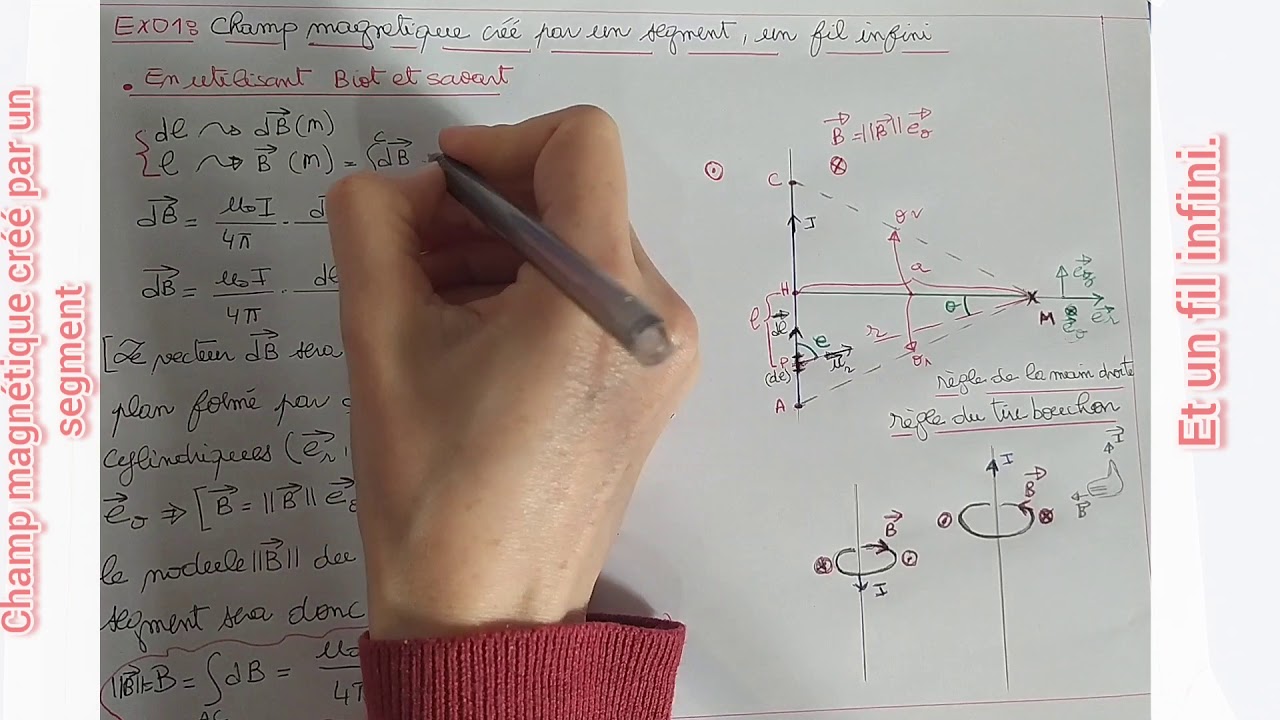 Champ magnétique créé par un
segment
Et un fil infini.
EXO1: Champ magnetique créé par un segment, un fil infini
• En utilisant Biot et savart
dl ⇝ dB⃗ (M)
l ⇝ B⃗ (M) = ∫ dB⃗
dB⃗ = μ₀I / 4π .
dB⃗ = μ₀I / 4π .
[Le vecteur dB⃗ sera
plan formé par
cylindriques (e⃗r
e⃗θ ⇒ [B⃗ = ||B⃗|| e⃗θ
le module ||B⃗|| du
segment sera donc
||B⃗||= B = ∫ dB = μ₀ / 4π
AC
B⃗ = ||B⃗|| e⃗θ
C
I
θ2
a
H
e⃗z
θ
M
e⃗θ
e⃗r
l
dl⃗
r
P
(dl)
u⃗r
θ1
A
règle de la main droite
règle du tire bouchon
I
B⃗
I
B⃗
B⃗
I